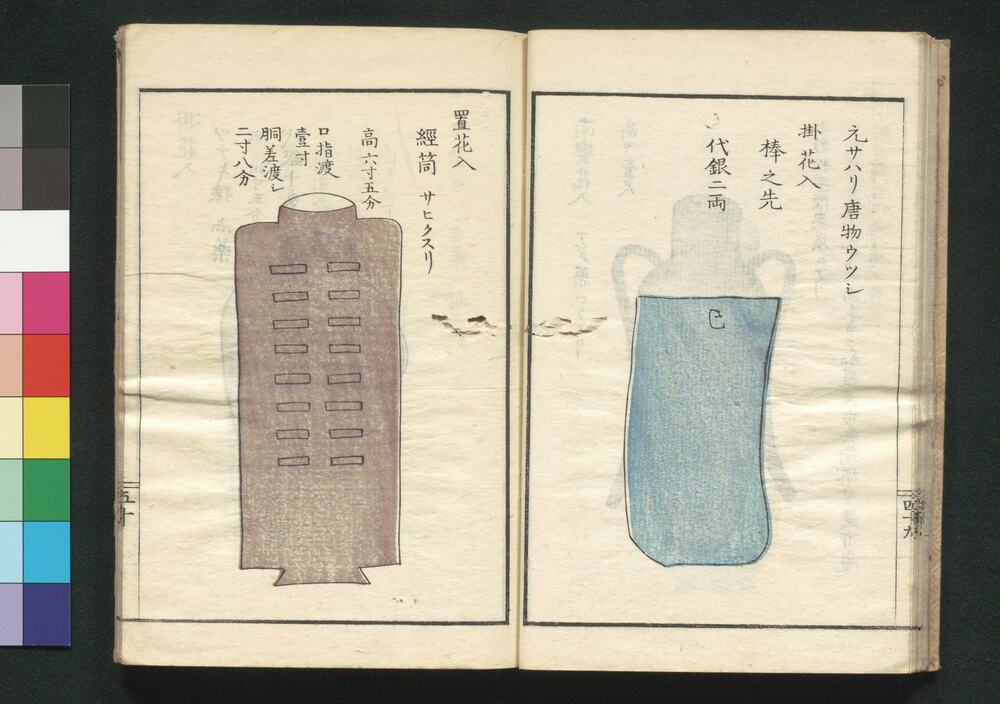 元サハリ唐物ウツシ
掛花入
棒之先
代銀二両
四十九
置花入
經筒 サヒクスリ
高六寸五分
口指渡
壹寸
胴差渡シ
二寸八分
五十